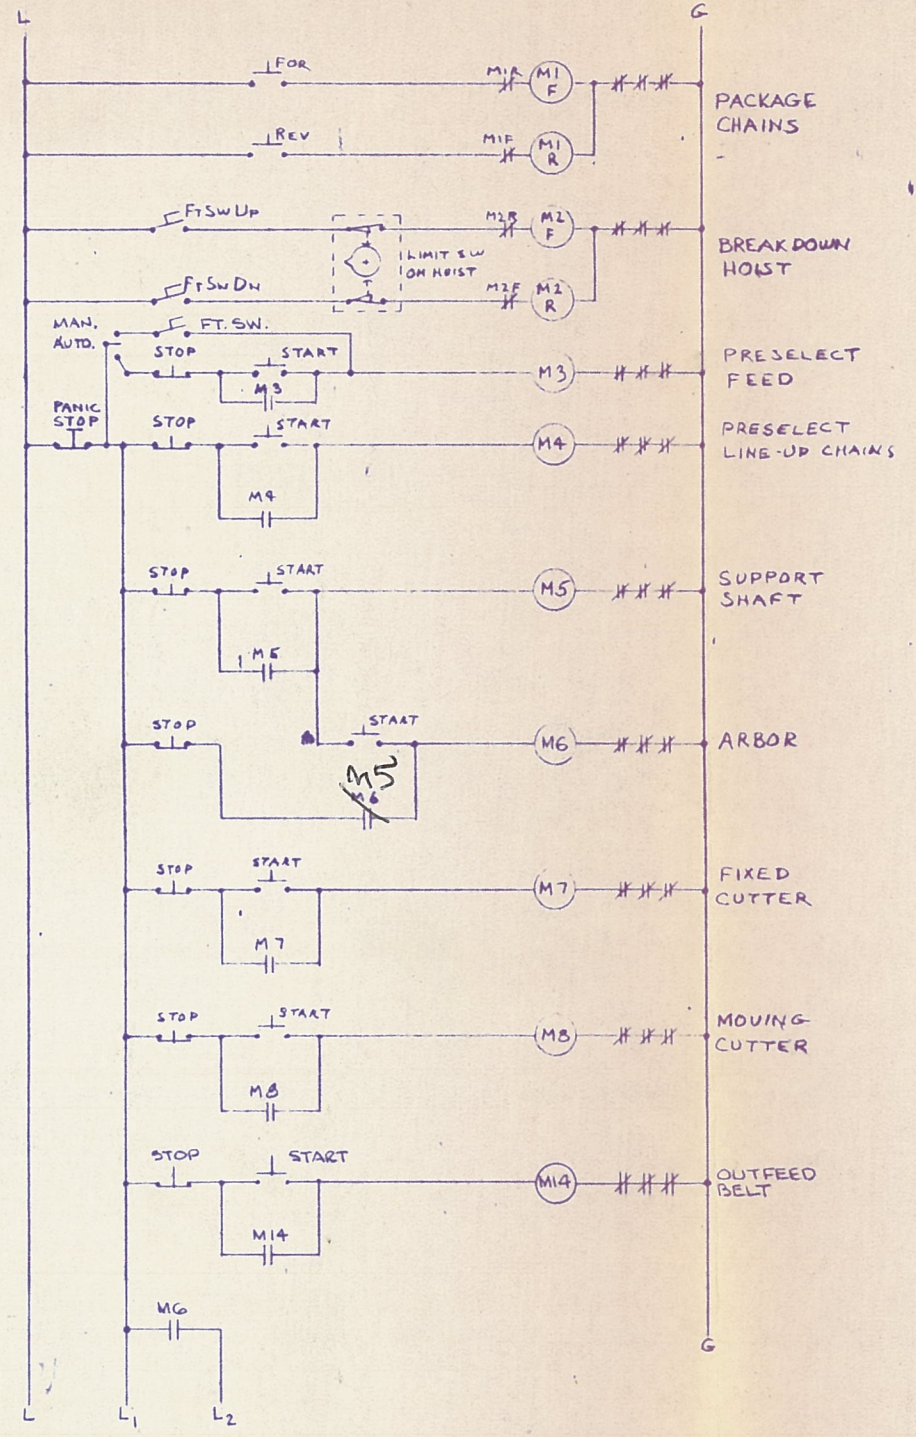 L
G
FOR
M1R
M1
F
PACKAGE
CHAINS
REV
M1F
M1
R
FT SW UP
M2R
M2
F
LIMIT SW
ON HOIST
BREAKDOWN
HOIST
FT SW DN
M2F
M2
R
MAN.
AUTO.
FT. SW.
STOP
START
M3
M3
PRESELECT
FEED
PANIC
STOP
STOP
START
M4
M4
PRESELECT
LINE-UP CHAINS
STOP
START
M5
M5
SUPPORT
SHAFT
STOP
START
M6
ARBOR
M5
M6
STOP
START
M7
M7
FIXED
CUTTER
STOP
START
M8
M8
MOVING
CUTTER
STOP
START
M14
M14
OUTFEED
BELT
M6
G
L
L1
L2